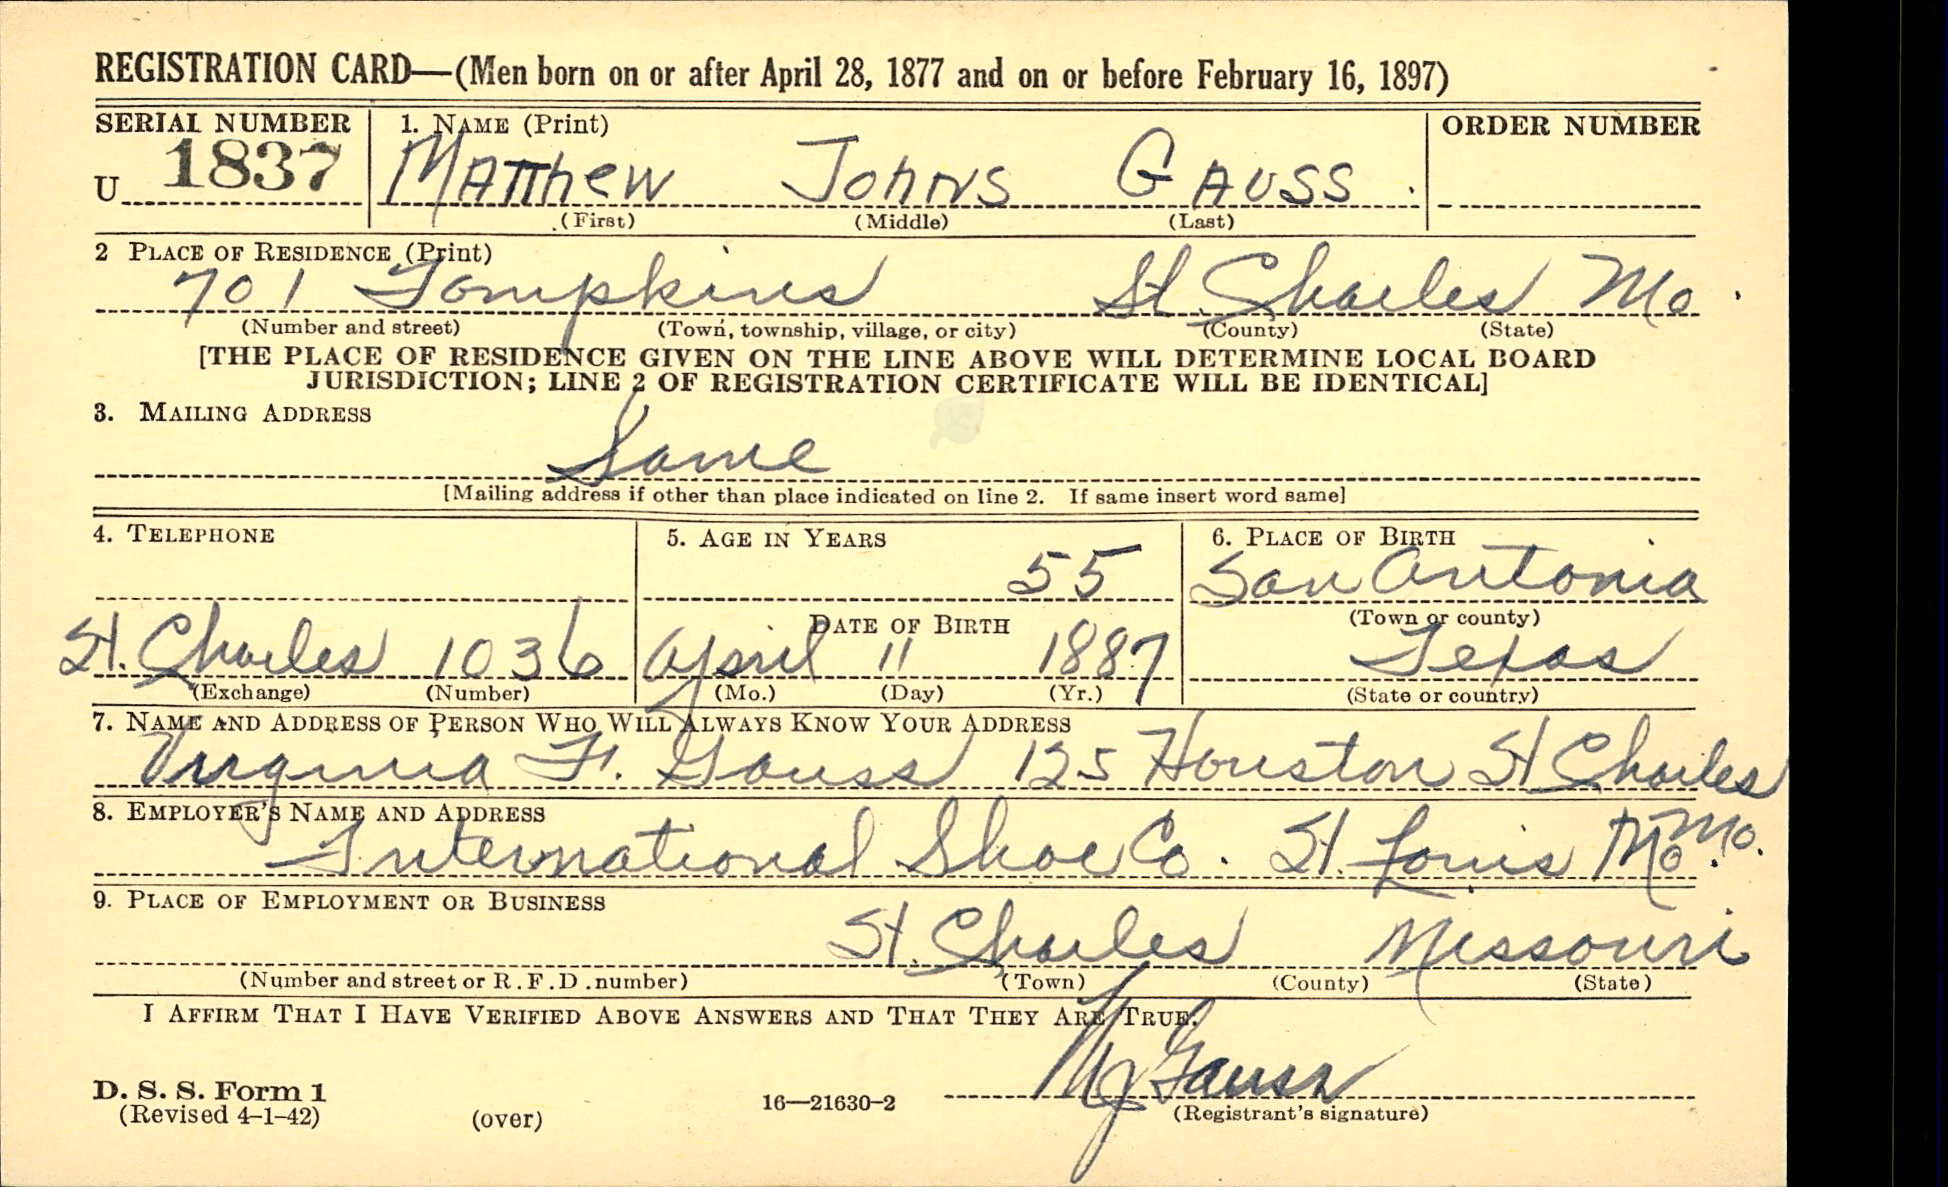 REGISTRATION CARD—(Men born on or after April 28, 1877 and on or before February 16, 1897)
SERIAL NUMBER 1. NAME (Print) ORDER NUMBER
U 1837 Matthew Johns Gauss
(First) (Middle) (Last)
2 PLACE OF RESIDENCE (Print)
701 Tompkins St. Charles Mo
(Number and street) (Town, township, village, or city) (County) (State)
[THE PLACE OF RESIDENCE GIVEN ON THE LINE ABOVE WILL DETERMINE LOCAL BOARD
JURISDICTION; LINE 2 OF REGISTRATION CERTIFICATE WILL BE IDENTICAL]
3. MAILING ADDRESS
Same
[Mailing address if other than place indicated on line 2. If same insert word same]
4. TELEPHONE 5. AGE IN YEARS 6. PLACE OF BIRTH
55 San Antonia
DATE OF BIRTH (Town or county)
St. Charles 1036 April 11 1887 Texas
(Exchange) (Number) (Mo.) (Day) (Yr.) (State or country)
7. NAME AND ADDRESS OF PERSON WHO WILL ALWAYS KNOW YOUR ADDRESS
Virginia F. Gauss 125 Houston St Charles
Mo.
8. EMPLOYER'S NAME AND ADDRESS
International Shoe Co. St. Louis Mo.
9. PLACE OF EMPLOYMENT OR BUSINESS
St. Charles Missouri
(Number and street or R.F.D. number) (Town) (County) (State)
I AFFIRM THAT I HAVE VERIFIED ABOVE ANSWERS AND THAT THEY ARE TRUE.
MJ Gauss
D. S. S. Form 1
(Revised 4-1-42) (over) 16—21630-2 (Registrant's signature)